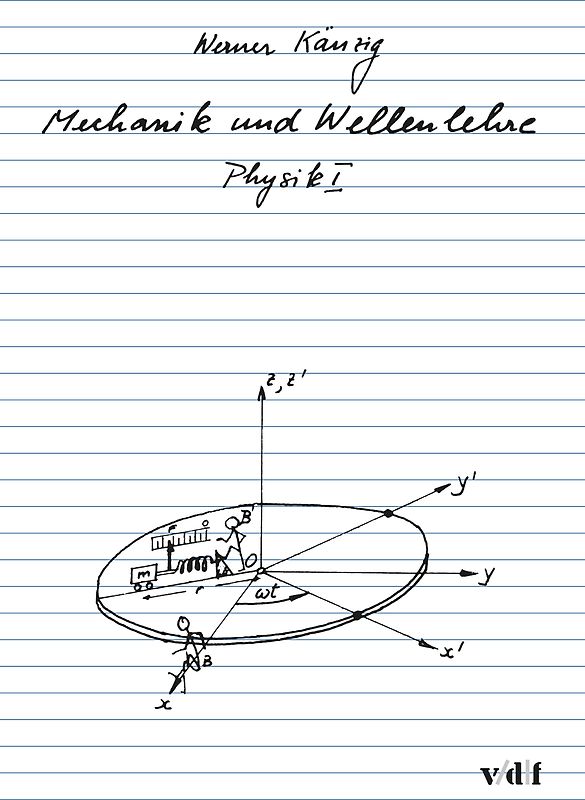 Werner Känzig
Mechanik und Wellenlehre
Physik I
z, z'
y'
B'
r
o
m
O
y
r
ωt
x'
B
x
v/d/f